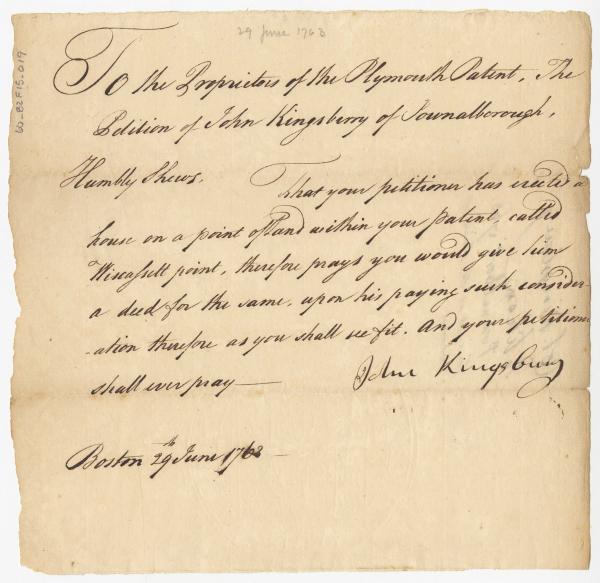 29 June 1763
To the Proprietors of the Plymouth Patent, The
Petition of John Kingsberry of Pownalborough,
Humbly Shews, That your petitioner has erected a
house on a point of Land within your patent called
Wiscassett point, therefore prays you would give him
a deed for the same, upon his paying such consider-
-ation therefore as you shall see fit. And your petitioner
shall ever pray—
John Kingsbury
Boston 29th June 1763 —